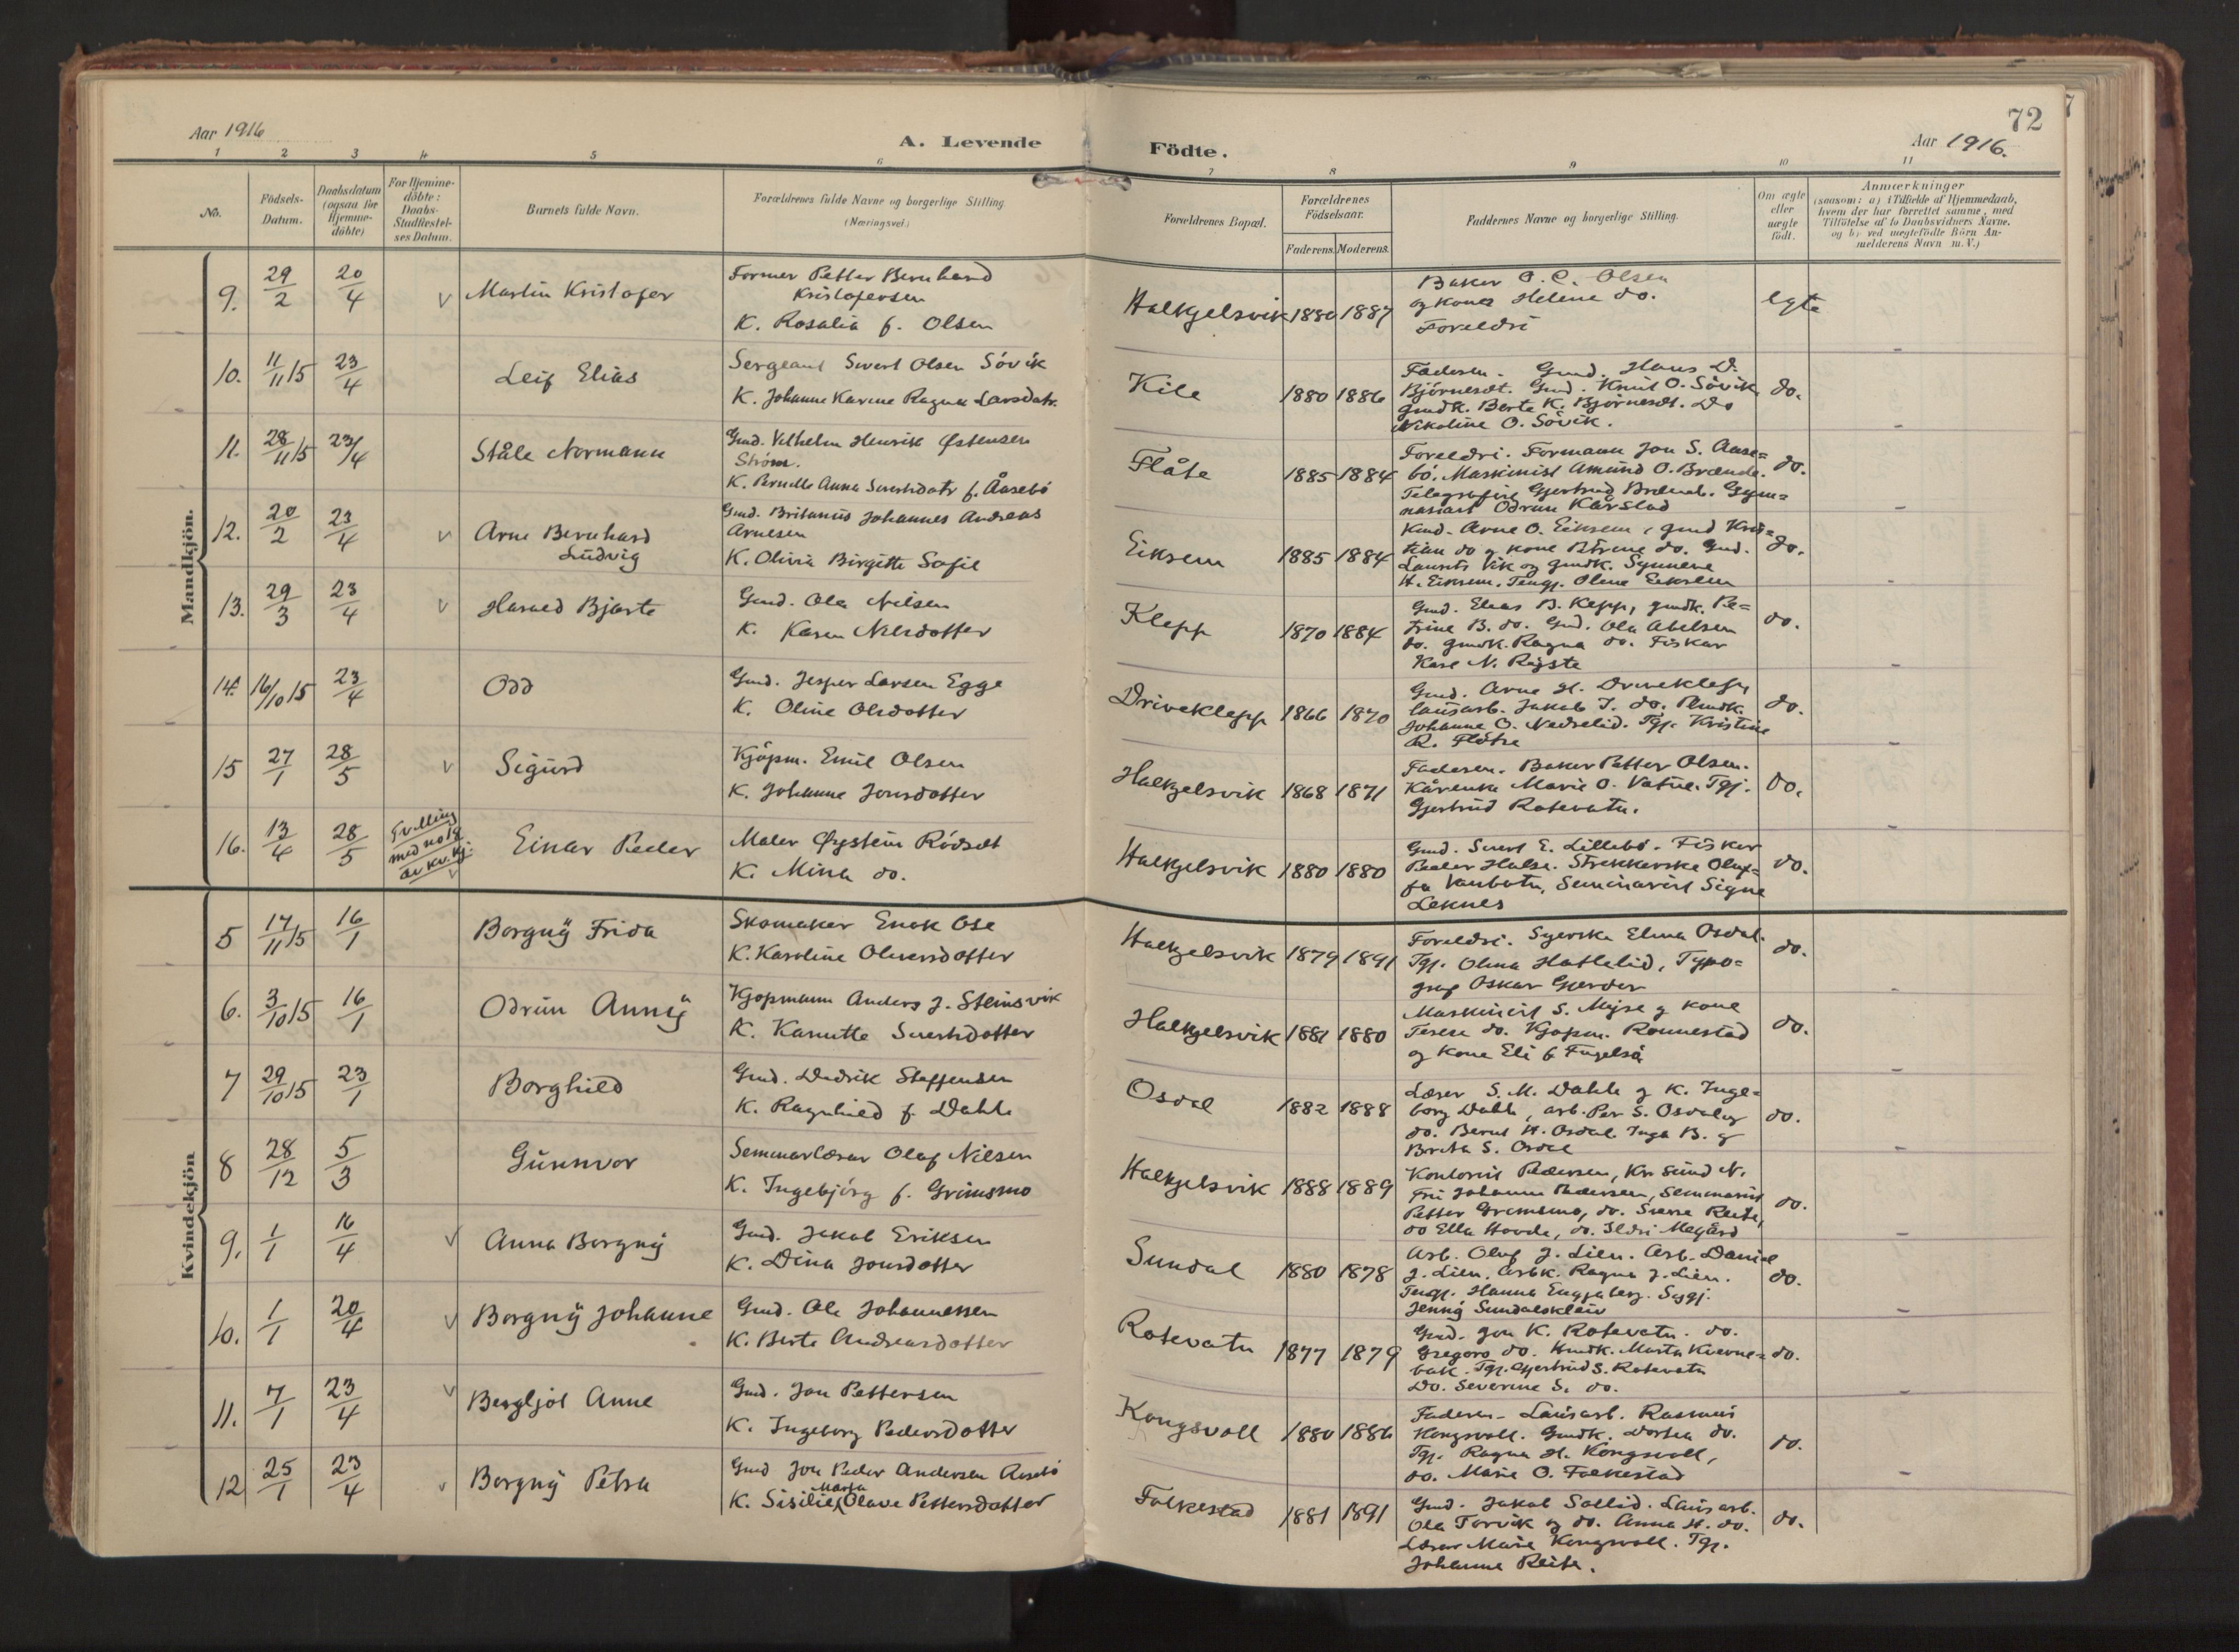 72
Aar 1916
A. Levende
Födte.
Aar 1916.
1 2 3 4 5 6 7 8 9 10 11
No.
Födsels-
Datum.
Daabsdatum
(ogsaa for
Hjemme-
döbte)
For Hjemme-
döbte:
Daabs-
Stadfæstel-
ses Datum.
Barnets fulde Navn.
Forældrenes fulde Navne og borgerlige Stilling
(Næringsvei.)
Forældrenes Bopæl.
Forældrenes
Födselsaar.
Faderens. Moderens.
Faddernes Navne og borgerlige Stilling.
Om ægte
eller
uægte
födt.
Anmærkninger
(saasom: a) i Tilfælde af Hjemmedaab,
hvem der har forrettet samme, med
Tilföielse af to Daabsvidners Navne.
og b) ved uegtefödte Börn An-
melderens Navn m.V.)
Mandkjön.
9. 29/2 20/4 v Martin Kristofer
Former Petter Bernhard
Kristofersen
K. Rosalia f. Olsen
Halkjelsvik 1880 1887
Baker O. C. Olsen
og kone Helene do.
Foreldri
egte
10. 11/11 15 23/4 Leif Elias
Sergeant Sivert Olsen Sövik
K. Johanne Karine Ragna Larsdatr.
Kile 1880 1886
Faderen. Gmd. Hans D.
Björnesdt. Gmd. Knut O. Sövik
gmdk. Berte K. Björnesdt. Do
Nikoline O. Sövik.
do.
11. 28/11 15 23/4 Ståle Normann
Gmd. Vilhelm Henrik Østensen
Ström.
K. Pernille Anna Sivertsdatr f. Åasebö
Flåte 1885 1884
Foreldri. Formann Jon S. Aase=
bö. Maskinist Amund O. Brænde.
Telegrafist Gjertrud Brænd. Gym=
nasiast Odrun Kårstad
do.
12. 20/2 23/4 v Arne Bernhard
Ludvig
Gmd. Britanus Johannes Andreas
Arnesen
K. Olivia Birgitte Sofie
Eiksem 1885 1884
Kmd. Arne O. Eiksem, gmd Kris=
tian do og kone do. Gmd.
Laurits Vik og gmdk. Synneve
H. Eiksem. Tengj. Oline Eiksem
do.
13. 29/3 23/4 v Harald Bjarte
Gmd. Ola Nilsen
K. Karen Nilsdotter
Klepp 1870 1884
Gmd. Elias B. Klepp, gmdk. Pe=
trine B. do. Gmd. Ola Abelsen
do. gmdk. Ragna do. Fiskar
Kare N. Røyste
do.
14. 16/10 15 23/4 Odd
Gmd. Jesper Larsen Egge
K. Oline Olsdotter
Driveklepp 1866 1870
Gmd. Arne H. Driveklepp
lausarb. Jakob J. do.
Johanne O. Nedrelid. Tgj. Kristine
R. Flötre
do.
15 27/1 28/5 v Sigurd
Kjöpm. Emil Olsen
K. Johanne Jonsdotter
Halkjelsvik 1868 1871
Faderen. Baker Petter Olsen.
Kårenke Marie O. Vatne. Tgj.
Gjertrud Rotevatn.
do.
16. 13/4 28/5 Tvilling
med no 18
av kv.kj. v
Einar Peder
Maler Øystein Rödset
K. Mina do.
Halkjelsvik 1880 1880
Gmd. Sivert E. Lillebö. Fiskar
Peder Halse. Strekkerske Oluf=
fa Vanbotn, Seminarist Signe
Leknes
do.
Kvindekjön
5 17/11 15 16/1 Borgny Frida
Skomaker Enok Ose
K. Karoline Oliversdotter
Halkjelsvik 1879 1891
Foreldri. Syerska Elina Osdal.
Tgj. Olina Hatlelid, Typo=
graf Oskar Gjerder
do.
6. 3/10 15 16/1 Odrun Anny
Kjøpmann Anders J. Steinsvik
K. Kanutte Sivertsdotter
Halkjelsvik 1881 1880
Maskinist S. Myse og kone
Terese do. Kjøpm. Rønnestad
og kone Eli f. Fugelsö
do.
7 29/10 15 23/1 Borghild
Gmd. Didrik Steffensen
K. Ragnhild f. Dahle
Osdal 1882 1888
Læser S. M. Dahle og K. Inge=
borg Dahle, arb. Per S. Osdal og
do. Bernt H. Osdal. Inga B. og
Berta S. Osdal
do.
8 28/12 5/3 Gunnvor
Seminarlærar Olaf Nilsen
K. Ingebjörg f. Grimsmo
Halkjelsvik 1888 1889
Kontorist Pedersen, Kr. sund N.
Fru Johanne Pedersen, Seminarist
Petter Grimsmo, do. Sverre Reite,
do Ella Hovde, do. Ildri Megård
do.
9. 1/1 16/4 v Anna Borgny
Gmd. Jakob Eriksen
K. Dina Jonsdotter
Sundal 1880 1878
Arb. Oluf J. Lien. Arb. Daniel
J. Lien. Arbk. Ragna J. Lien.
Tengj. Hanna Sygj.
Jenny Sundalskleiv
do.
10. 1/1 20/4 v Borgny Johanne
Gmd. Ole Johannessen
K. Berte Andreasdotter
Rotevatn 1877 1879
Gmd. Jon K. Rotevatn. do.
Gregoro do. Kmdk. Marta Kverne=
bak. Tgj. Gjertrud S. Rotevatn
Do. Severine S. do.
do.
11. 7/1 23/4 v Bergljot Anne
Gmd. Jon Pettersen
K. Ingeborg Pedersdotter
Kongsvoll 1880 1886
Faderen. Lausarb. Rasmus
Kongsvoll. Gmdk. Dortea do.
Tgj. Ragna H. Kongsvoll,
do. Marie O. Folkestad
do.
12 25/1 23/4 v Borgny Petra
Gmd Jon Peder Andersen Aasebö
Marta
K. Sisilie Olave Pettersdotter
Folkestad 1881 1891
Gmd. Jakob Sollid. Lausarb.
Ola Torvik og do. Anna H. do.
Lærar Marie Kongsvoll. Tgj.
Johanne Reite.
do.